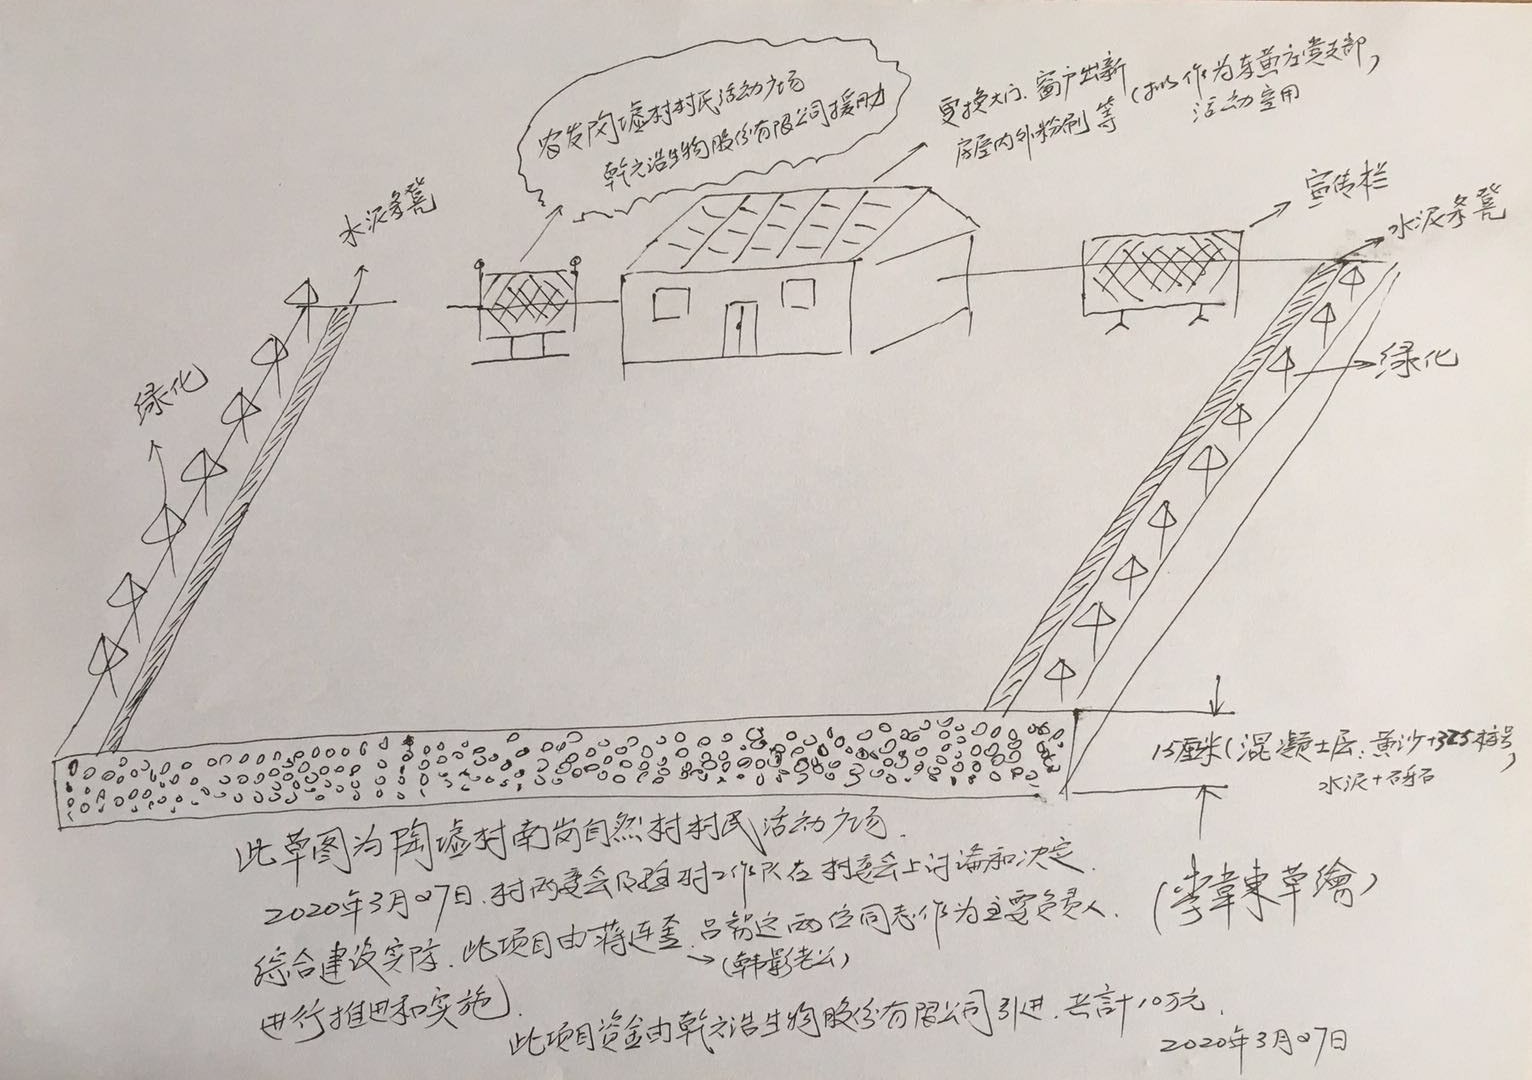 农发陶墟村村民活动广场
乾元浩生物股份有限公司援助
更换大门、窗户出新
房屋内外粉刷等
(拟作为东黄庄党支部,
活动室用
水泥条凳
宣传栏
水泥条凳
绿化
绿化
15厘米(混凝土层:黄沙+325标号
水泥+石子
此草图为陶墟村南岗自然村村民活动广场.
2020年3月07日.村两委会及驻村工作队在村委会上讨论和决定.
综合建设实际.此项目由蒋连奎、吕 两位同志作为主要负责人.
(韩影老公)
进行推进和实施.
(李韋東草繪)
此项目资金由乾元浩生物股份有限公司引进.共計10万元.
2020年3月07日